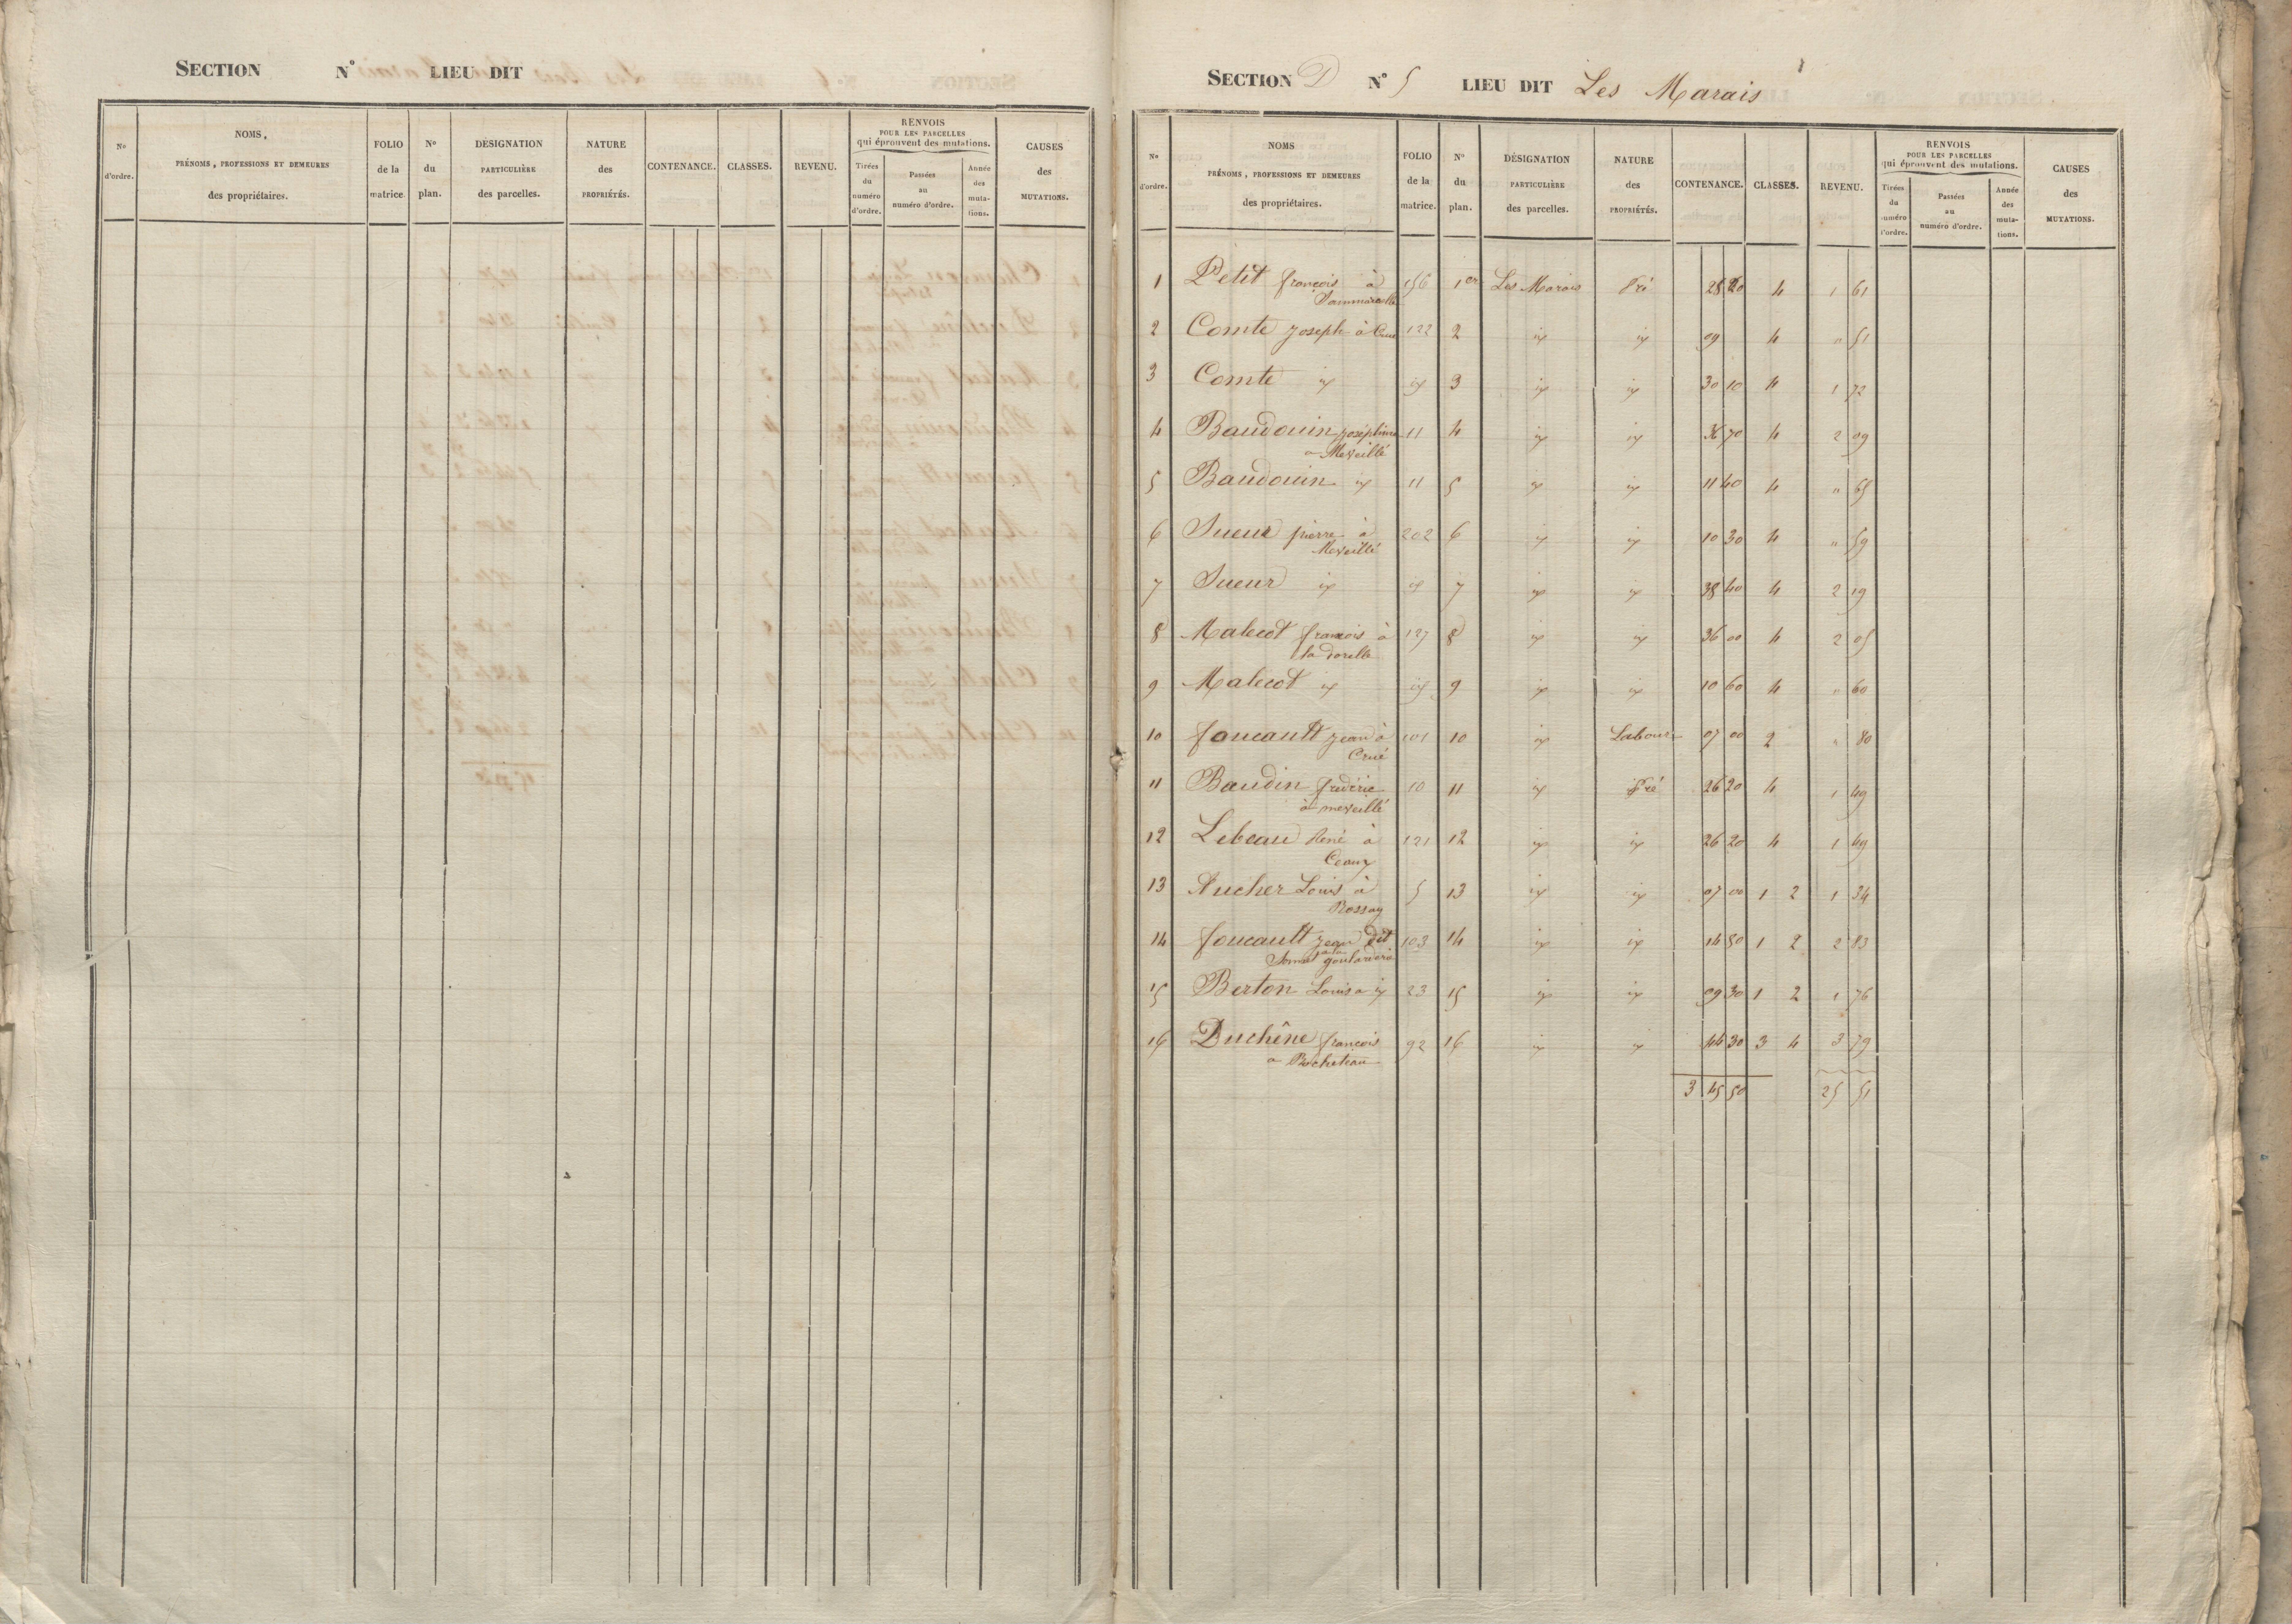 SECTION N° LIEU DIT
N° d'ordre. NOMS, PRÉNOMS, PROFESSIONS ET DEMEURES des propriétaires. FOLIO de la matrice. N° du plan. DÉSIGNATION PARTICULIÈRE des parcelles. NATURE des PROPRIÉTÉS. CONTENANCE. CLASSES. REVENU. RENVOIS POUR LES PARCELLES qui éprouvent des mutations. Tirées du numéro d'ordre. Passées au numéro d'ordre. Année des mutations. CAUSES des MUTATIONS.
SECTION D N° 5 LIEU DIT Les Marais
N° d'ordre. NOMS PRÉNOMS, PROFESSIONS ET DEMEURES des propriétaires. FOLIO de la matrice. N° du plan. DÉSIGNATION PARTICULIÈRE des parcelles. NATURE des PROPRIÉTÉS. CONTENANCE. CLASSES. REVENU. RENVOIS POUR LES PARCELLES qui éprouvent des mutations. Tirées du numéro d'ordre. Passées au numéro d'ordre. Année des mutations. CAUSES des MUTATIONS.
1 Petit françois à 156 1er Les Marais Pré 28 20 4 1 61
Sammarcolle
2 Comte joseph à Crué 122 2 id id 09 4 " 51
3 Comte id id 3 id id 30 10 4 1 72
4 Baudouin joséphine 11 4 id id 36 70 4 2 09
a Meveillé
5 Baudouin id 11 5 id id 11 40 4 " 65
6 Sueur pierre à 202 6 id id 10 30 4 " 59
Meveillé
7 Sueur id id 7 id id 38 40 4 2 19
8 Malecot francois à 127 8 id id 36 00 4 2 05
la dorelle
9 Malecot id id 9 id id 10 60 4 " 60
10 foucault jean à 101 10 id Labour 07 00 2 " 80
Crué
11 Baudin frédéric 10 11 id Pré 26 20 4 1 49
à meveillé
12 Lebeau René à 121 12 id id 26 20 4 1 49
Ceaux
13 Aucher Louis à 5 13 id id 07 00 1 2 1 34
Rossay
14 foucault jean dit 103 14 id id 14 50 1 2 2 83
a la goularderie
15 Berton Louis a id 23 15 id id 09 30 1 2 1 76
16 Duchêne françois 92 16 id id 44 30 3 4 3 79
a Rocheteau
3 45 50 25 51